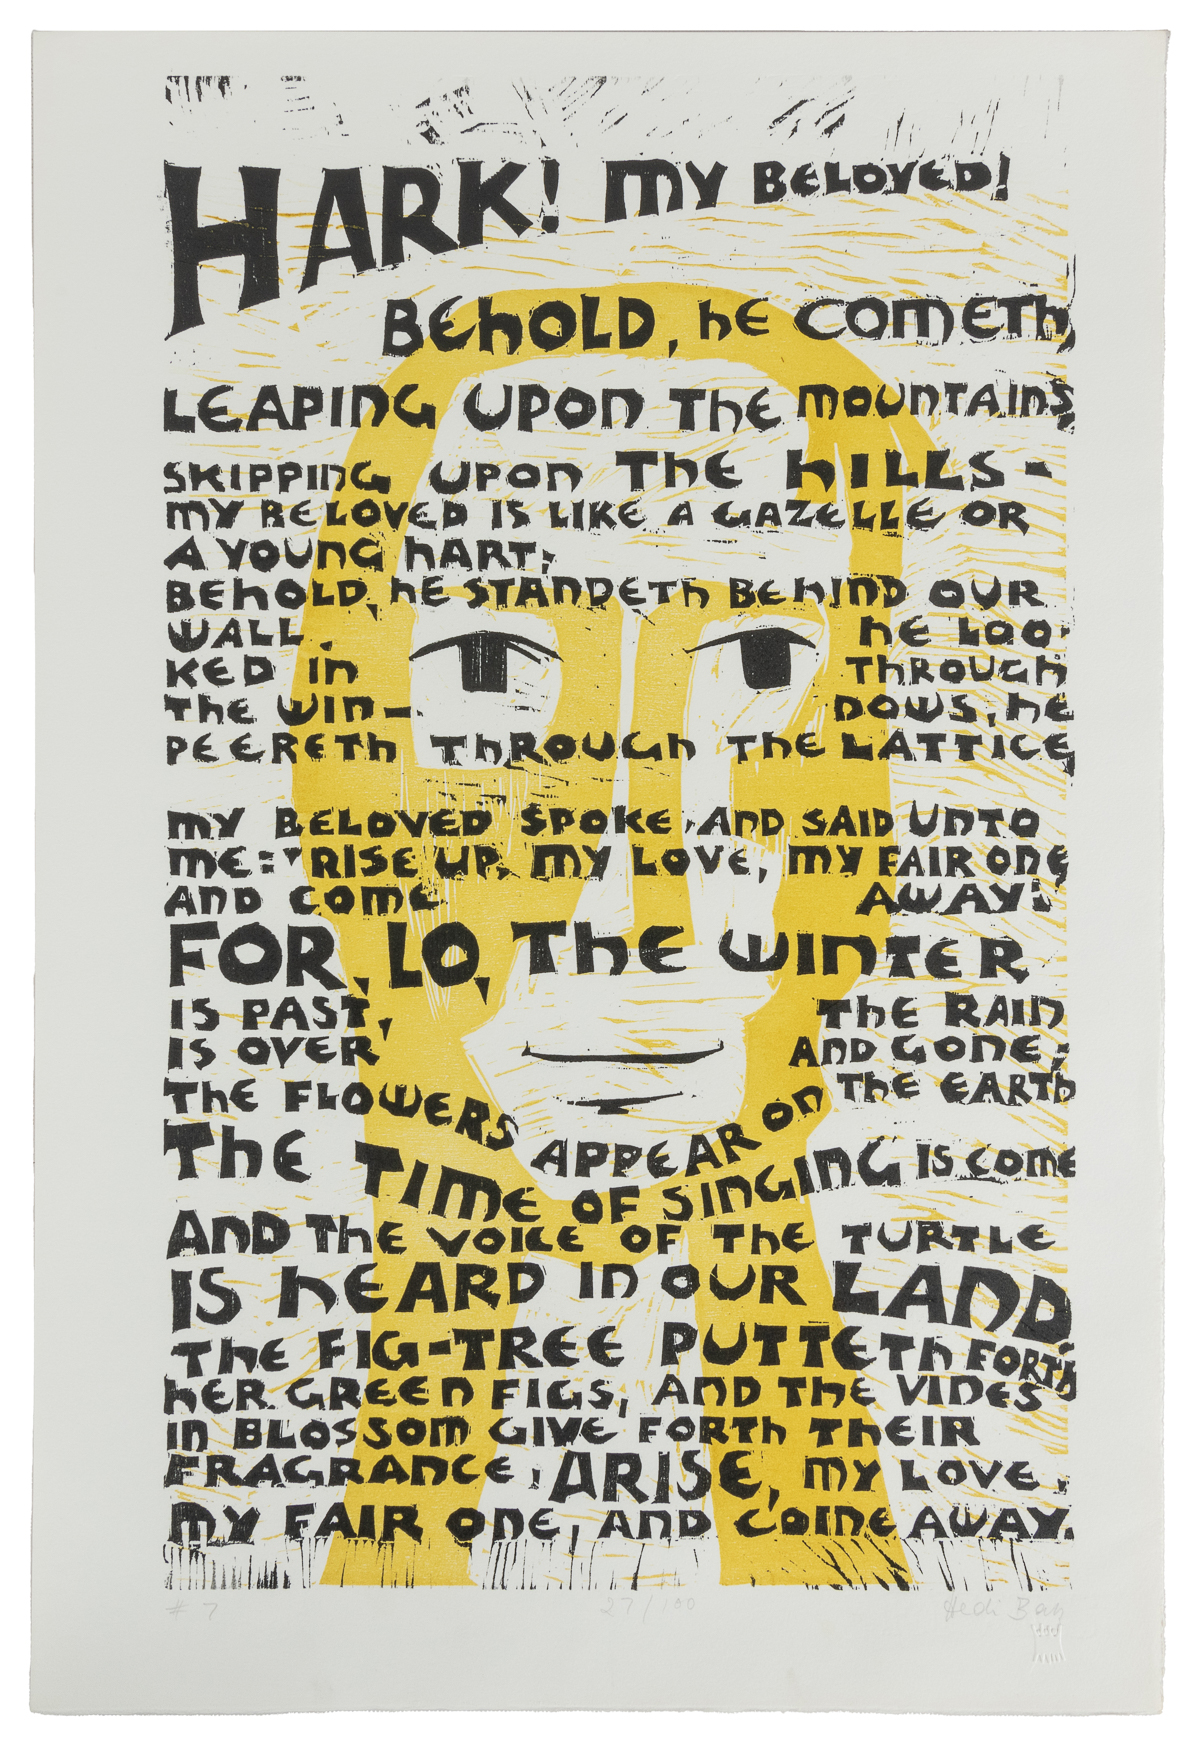 HARK! MY BELOVED!
BEHOLD, HE COMETH,
LEAPING UPON THE MOUNTAINS,
SKIPPING UPON THE HILLS-
MY BELOVED IS LIKE A GAZELLE OR
A YOUNG HART;
BEHOLD, HE STANDETH BEHIND OUR
WALL, HE LOO-
KED IN THROUGH
THE WIN- DOWS, HE
PEERETH THROUGH THE LATTICE
MY BELOVED SPOKE, AND SAID UNTO
ME: 'RISE UP, MY LOVE, MY FAIR ONE
AND COME AWAY:
FOR, LO, THE WINTER
IS PAST, THE RAIN
IS OVER AND GONE;
THE FLOWERS APPEAR ON THE EARTH
THE TIME OF SINGING IS COME
AND THE VOICE OF THE TURTLE
IS HEARD IN OUR LAND,
THE FIG-TREE PUTTETH FORTH
HER GREEN FIGS, AND THE VINES
IN BLOSSOM GIVE FORTH THEIR
FRAGRANCE, ARISE, MY LOVE,
MY FAIR ONE, AND COME AWAY.
# 7 27/100 Hedi Bay